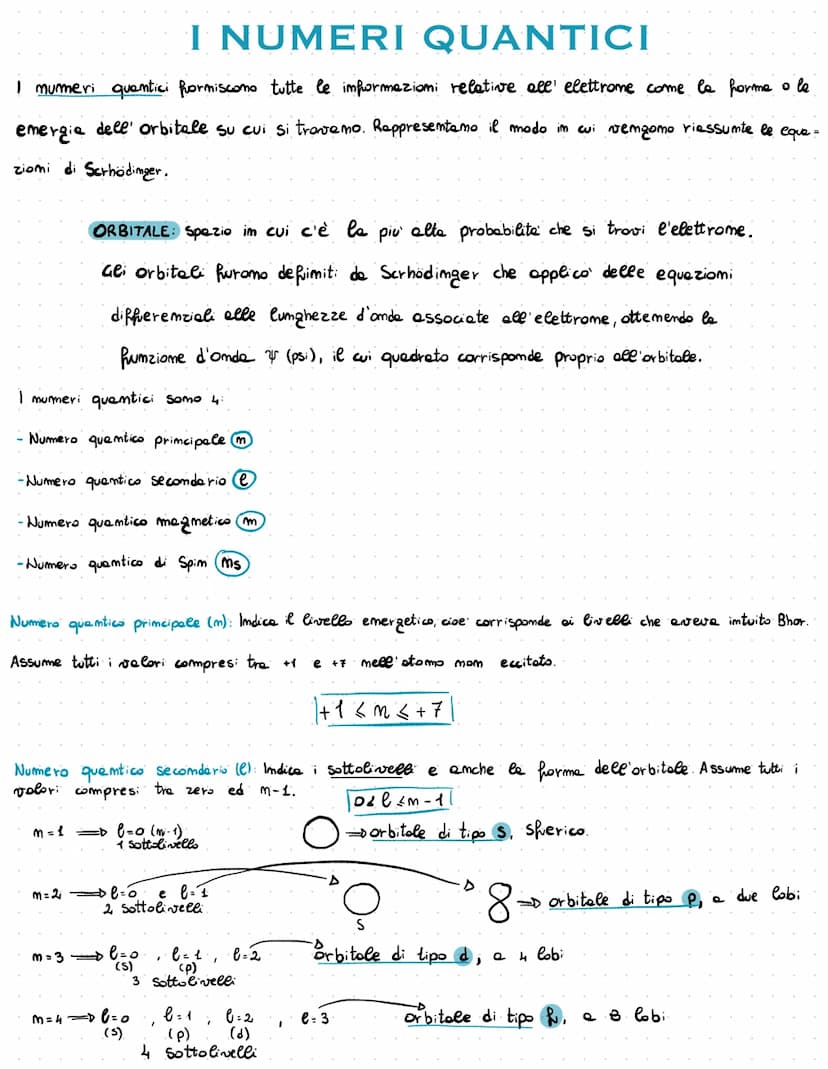 I NUMERI QUANTICI
I numeri quantici forniscono tutte le informazioni relative all' elettrone come la forma o la
energia dell' orbitale su cui si trovano. Rappresentano il modo in cui vengono riassunte le equa=
zioni di Scrhödinger.
ORBITALE: Spazio in cui c'è la piu' alta probabilita' che si trovi l'elettrone.
Gli orbitali furono definiti da Scrhödinger che applico' delle equazioni
differenziali alle lunghezze d'onda associate all'elettrone, ottenendo la
funzione d'onda ψ (psi), il cui quadrato corrisponde proprio all'orbitale.
I numeri quantici sono 4:
- Numero quantico principale n
- Numero quantico secondario l
- Numero quantico magnetico m
- Numero quantico di Spin ms
Numero quantico principale (n): Indica il livello energetico, cioe' corrisponde ai livelli che aveva intuito Bhor.
Assume tutti i valori compresi tra +1 e +7 nell'atomo non eccitato.
+1 ⩽ n ⩽ +7
Numero quantico secondario (l): Indica i sottolivelli e anche la forma dell'orbitale. Assume tutti i
valori compresi tra zero ed n-1. 0 ⩽ l ⩽ n-1
n=1 ⟹ l=0 (n-1) ⟹ orbitale di tipo s, sferico.
1 sottolivello
n=2 ⟹ l=0 e l=1 8 ⟹ orbitale di tipo p, a due lobi
2 sottolivelli S
n=3 ⟹ l=0 , l=1 , l=2 orbitale di tipo d, a 4 lobi
(s) (p)
3 sottolivelli
n=4 ⟹ l=0 , l=1 , l=2 , l=3 orbitale di tipo f, a 8 lobi
(s) (p) (d)
4 sottolivelli